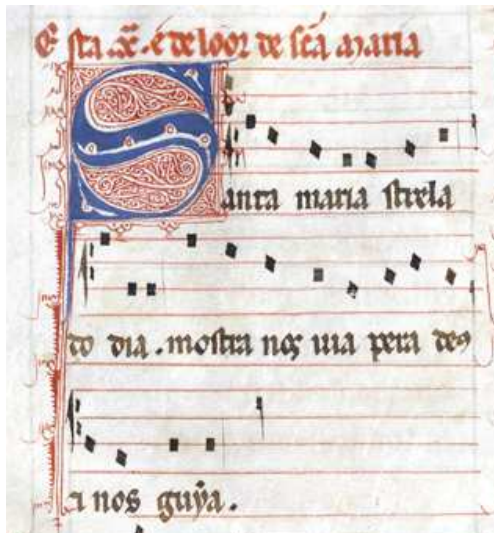 Esta .C. é de loor de scã maria
Santa maria strela
do dia . mostra nos uia pera deus
a nos guya .